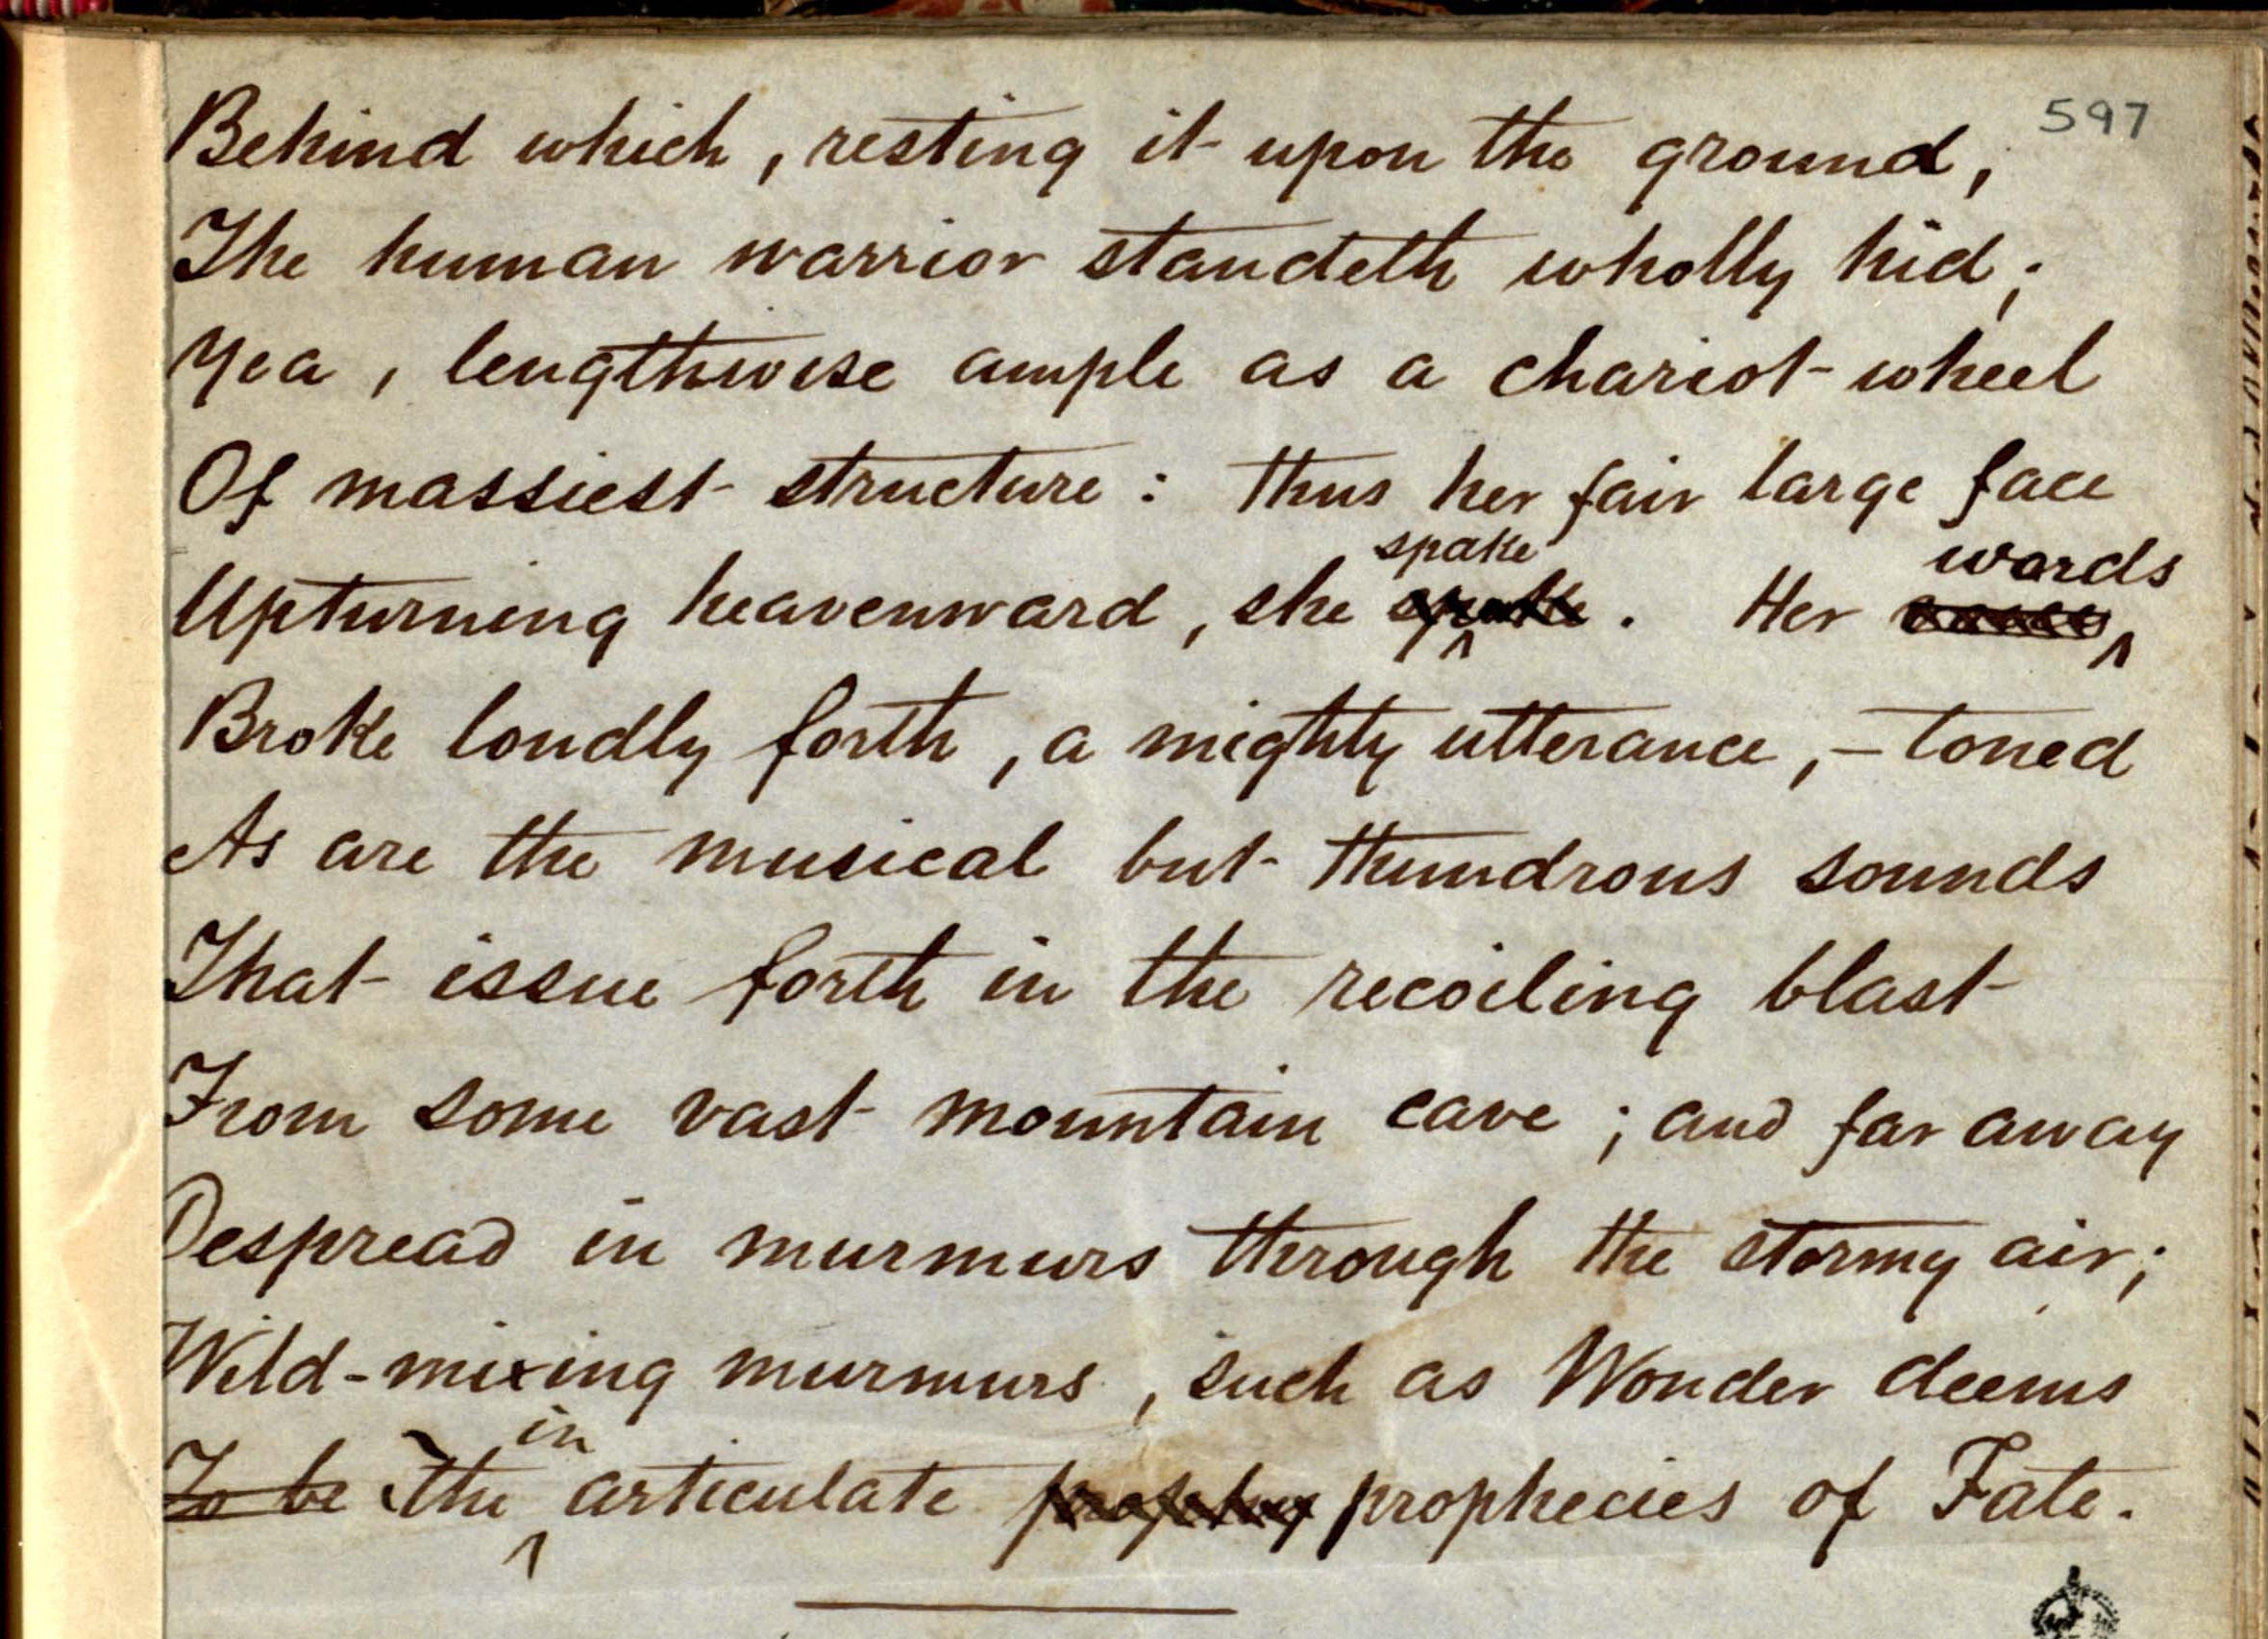 597
Behind which, resting it upon the ground,
The human warrior standeth wholly hid;
Yea, lengthwise ample as a chariot-wheel
Of massiest structure: thus her fair large face
spake words
Upturning heavenward, she spake. Her
Broke loudly forth, a mighty utterance,—toned
As are the musical but thundrous sounds
That issue forth in the recoiling blast
From some vast mountain cave; and far away
Despread in murmurs through the stormy air;
Wild-mixing murmurs, such as Wonder deems
in
To be The articulate prophecy prophecies of Fate.